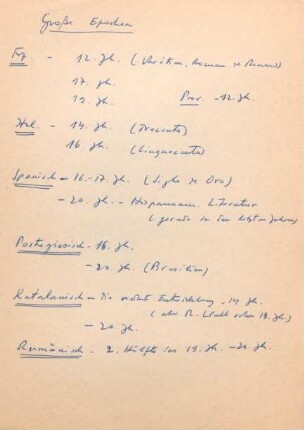 Große Epochen
Fr. - 12. Jh. (Chrétien, Roman de Renard)
17. Jh.
19. Jh. Prov. - 12. Jh.
Ital. - 14. Jh. (Trecento)
16 Jh. (Cinquecento)
Spanisch - 16.-17. Jh. (Siglo de Oro)
- 20. Jh. - Hispanoam. Literatur
(gerade in den letzten Jahren)
Portugiesisch - 16. Jh.
- 20. Jh. (Brasilien)
Katalanisch - die Entwicklung - 14. Jh.
(aber R. Llull schon 13. Jh.)
- 20. Jh.
Rumänisch - 2. Hälfte des 19. Jh. - 20. Jh.